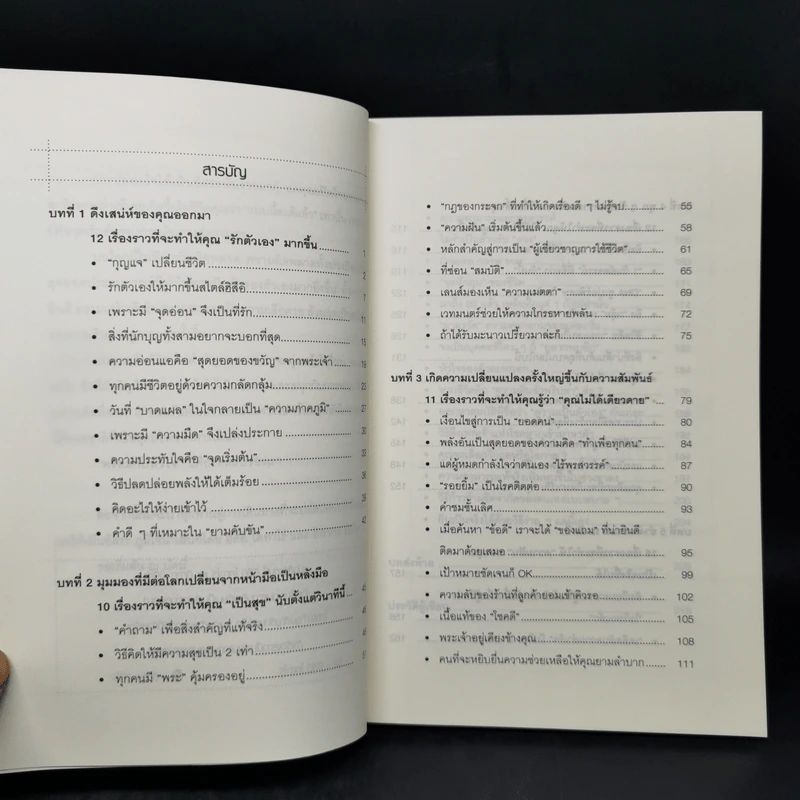 สารบัญ
บทที่ 1 ดึงเสน่ห์ของคุณออกมา
12 เรื่องราวที่จะทำให้คุณ "รักตัวเอง" มากขึ้น 1
• "กุญแจ" เปลี่ยนชีวิต 2
• รักตัวเองให้มากขึ้นสไตล์ฮิสึอิ 7
• เพราะมี "จุดอ่อน" จึงเป็นที่รัก 11
• สิ่งที่นักบุญทั้งสามอยากจะบอกที่สุด 15
• ความอ่อนแอคือ "สุดยอดของขวัญ" จากพระเจ้า 19
• ทุกคนมีชีวิตอยู่ด้วยความกลัดกลุ้ม 23
• วันที่ "บาดแผล" ในใจกลายเป็น "ความภาคภูมิ" 27
• เพราะมี "ความมืด" จึงเปล่งประกาย 30
• ความประทับใจคือ "จุดเริ่มต้น"
• วิธีปลดปล่อยพลังให้ได้เต็มร้อย
• คิดอะไรให้ง่ายเข้าไว้
• คำดี ๆ ที่เหมาะใน "ยามคับขัน"
บทที่ 2 มุมมองที่มีต่อโลกเปลี่ยนจากหน้ามือเป็นหลังมือ
10 เรื่องราวที่จะทำให้คุณ "เป็นสุข" นับตั้งแต่วินาทีนี้
• "คำถาม" เพื่อสิ่งสำคัญที่แท้จริง
• วิธีคิดให้มีความสุขเป็น 2 เท่า
• ทุกคนมี "พระ" คุ้มครองอยู่
• "กฎของกระจก" ที่ทำให้เกิดเรื่องดี ๆ ไม่รู้จบ 55
• "ความฝัน" เริ่มต้นขึ้นแล้ว 58
• หลักสำคัญสู่การเป็น "ผู้เชี่ยวชาญการใช้ชีวิต" 61
• ที่ซ่อน "สมบัติ" 65
• เลนส์มองเห็น "ความเมตตา" 69
• เวทมนตร์ช่วยให้ความโกรธหายพลัน 72
• ถ้าได้รับมะนาวเปรี้ยวมาล่ะก็ 75
บทที่ 3 เกิดความเปลี่ยนแปลงครั้งใหญ่ขึ้นกับความสัมพันธ์
11 เรื่องราวที่จะทำให้คุณรู้ว่า "คุณไม่ได้เดียวดาย" 79
• เงื่อนไขสู่การเป็น "ยอดคน" 80
• พลังอันเป็นสุดยอดของความคิด "ทำเพื่อทุกคน" 84
• แด่ผู้หมดกำลังใจว่าตนเอง "ไร้พรสวรรค์" 87
• "รอยยิ้ม" เป็นโรคติดต่อ 90
• คำชมชั้นเลิศ 93
• เมื่อค้นหา "ข้อดี" เราจะได้ "ของแถม" ที่น่ายินดี
ติดมาด้วยเสมอ 95
• เป้าหมายชัดเจนก็ OK 99
• ความลับของร้านที่ลูกค้ายอมเข้าคิวรอ 102
• เนื้อแท้ของ "โชคดี" 105
• พระเจ้าอยู่เคียงข้างคุณ 108
• คนที่จะหยิบยื่นความช่วยเหลือให้คุณยามลำบาก 111